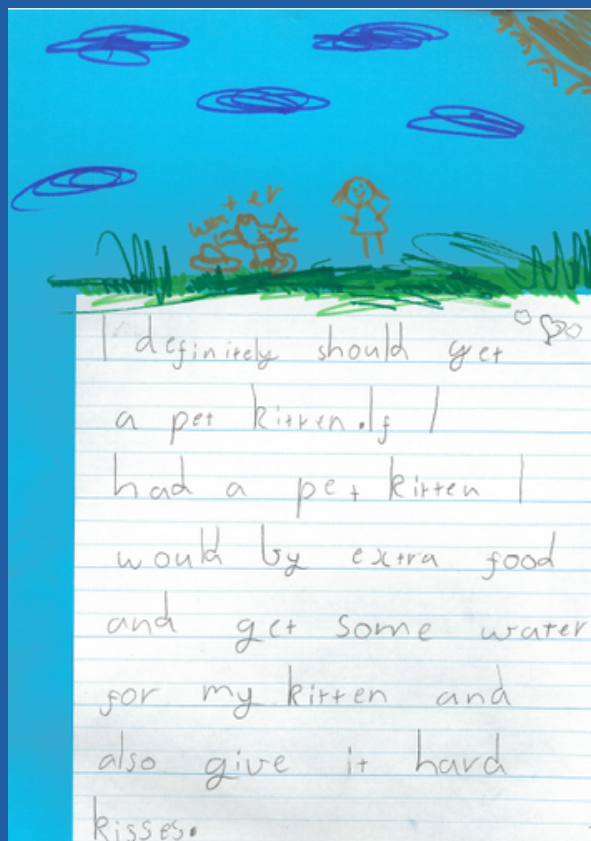 water
I definitely should get
a pet kitten. If I
had a pet kitten I
would by extra food
and get some water
for my kitten and
also give it hard
kisses.